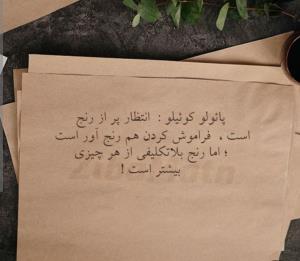 پائولو کوئیلو : انتظار پر از رنج
است ، فراموش کردن هم رنج آور است
؛ اما رنج بلاتکلیفی از هر چیزی
بیشتر است !